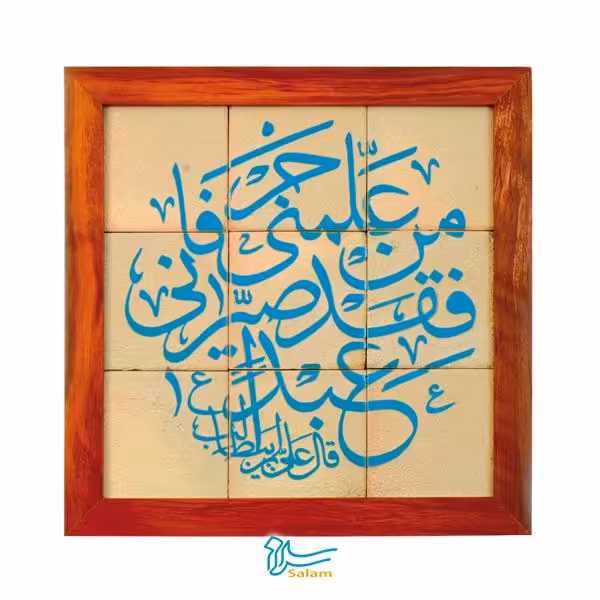 من علّمنی حرفا
فقد صیّرانی
عبدا
قال علی ابن ابیطالب ع
سلام
Salam